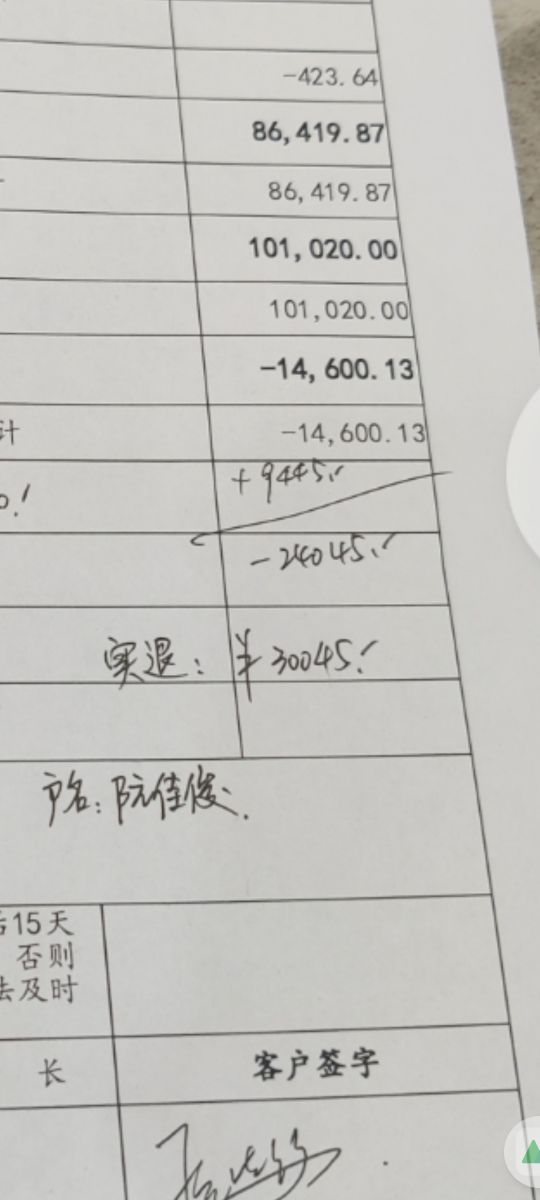 -423.64
86,419.87
86,419.87
101,020.00
101,020.00
-14,600.13
计 -14,600.13
+9445.
-24045.
实退: ¥30045.
户名: 阮佳俊.
后15天
否则
法及时
长 客户签字